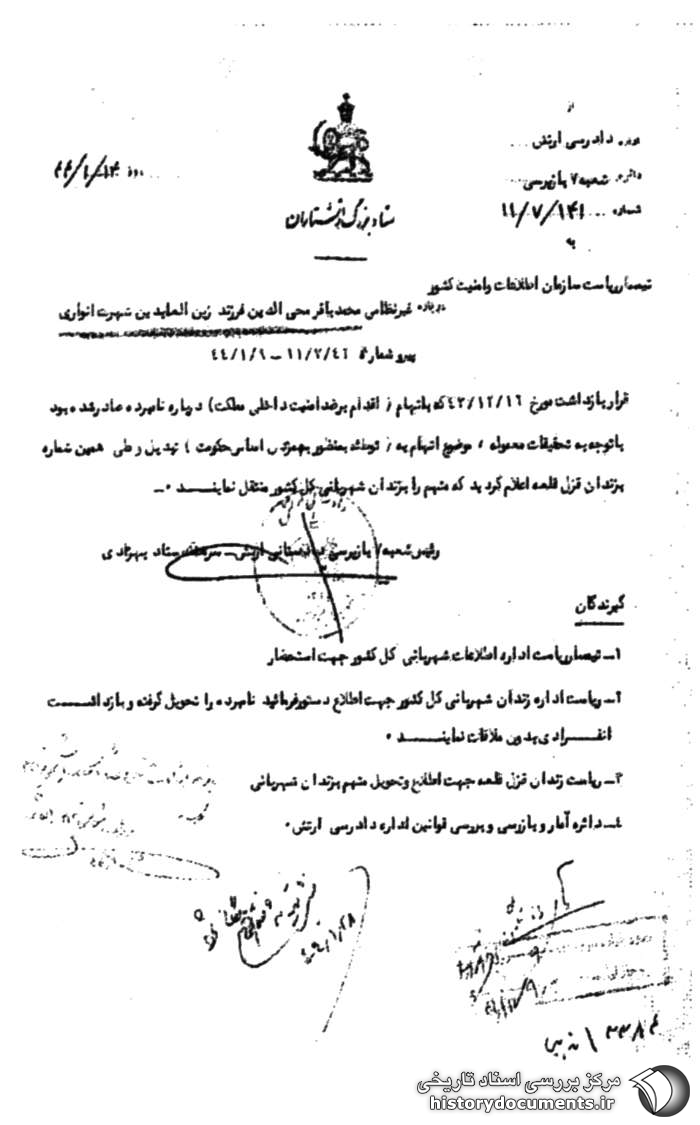 از
اداره دادرسی ارتش
دائره شعبه ۷ بازپرسی
شماره ۱۱/۷/۱۴۱
به
ستاد بزرگ ارتشتاران
تیمسار ریاست سازمان اطلاعات و امنیت کشور
درباره غیرنظامی محمد باقر محی الدین فرزند زین العابدین شهرت انواری
پیرو شماره ۱۱/۲/۴۲ – ۴۴/۱/۹
قرار بازداشت مورخ ۴۳/۱۲/۱۶ که باتهام ( اقدام برضد امنیت داخلی مملکت ) درباره نامبرده صادر شده بود
باتوجه به تحقیقات معموله ، موضوع اتهام به ( توطئه بمنظور بهمزدن اساس حکومت ) تبدیل و طی همین شماره
بزندان قزل قلعه اعلام گردید که متهم را بزندان شهربانی کل کشور منتقل نمایند ۰ــ
رئیس شعبه ۷ بازپرسی دادستانی ارتش ــ سرهنگ ستاد بهزادی
گیرندگان
۱ــ تیمسار ریاست اداره اطلاعات شهربانی کل کشور جهت استحضار
۲ــ ریاست اداره زندان شهربانی کل کشور جهت اطلاع دستور فرمائید نامبرده را تحویل گرفته و بازداشت
انفرادی بدون ملاقات نمایند ۰
۳ــ ریاست زندان قزل قلعه جهت اطلاع و تحویل متهم بزندان شهربانی
۴ــ دائره آمار و بازرسی و بررسی قوانین اداره دادرسی ارتش ۰
مرکز بررسی اسناد تاریخی
historydocuments.ir